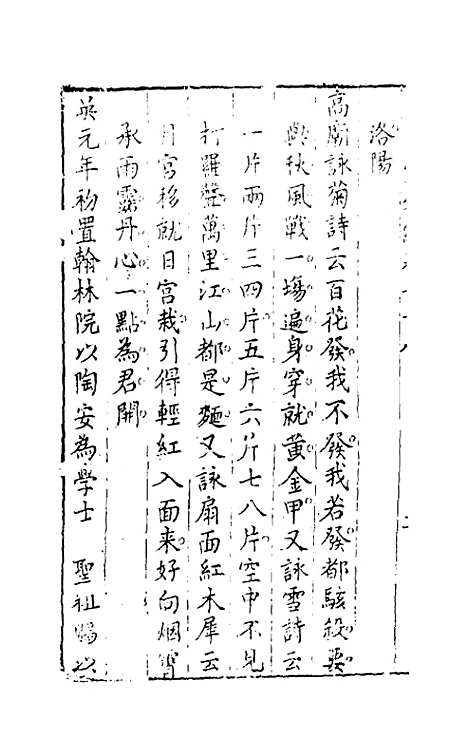 洛陽
高廟詠菊詩云百花發我不發我若發都駭殺要
與秋風戰一塲遍身穿就黃金甲又詠雪詩云
一片兩片三四片五片六片七八片空中不見
打羅聲萬里江山都是麵又詠扇面紅木犀云
月宮移就日宮栽引得輕紅入面来好向烟霄
承雨露丹心一點為君開
英元年初置翰林院以陶安為學士 聖祖賜以